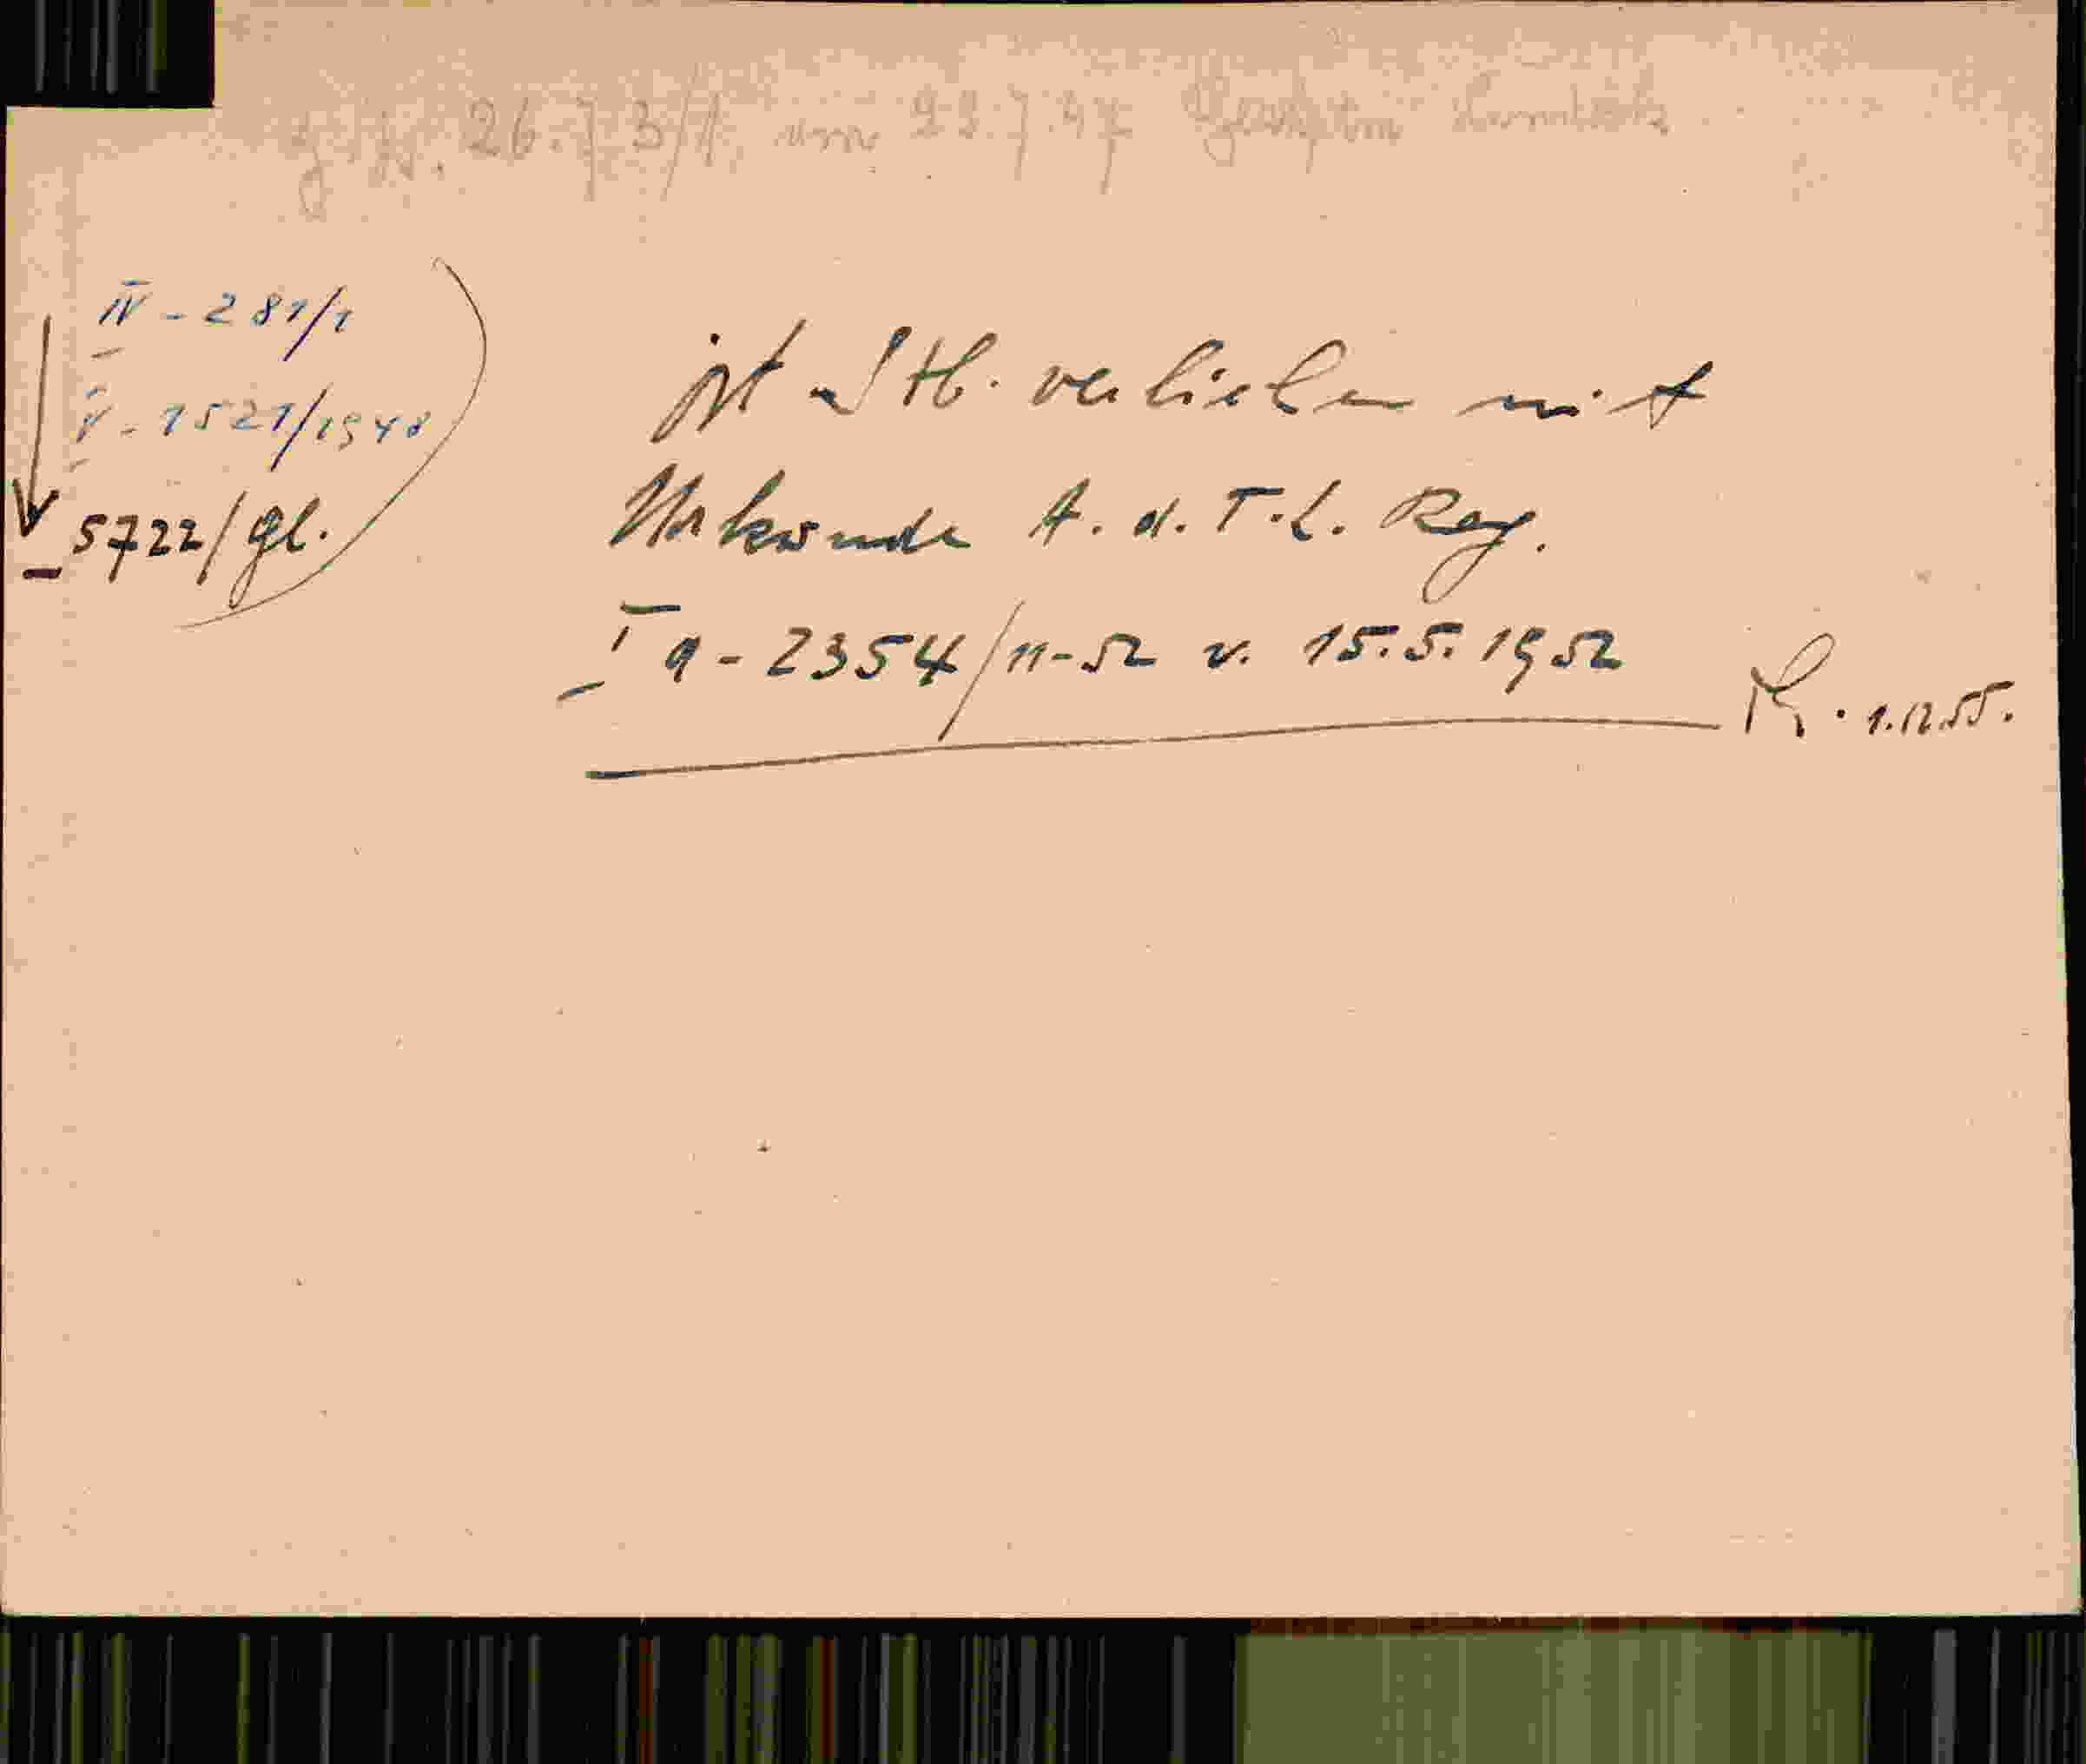 26.73/1 vom 23.7.47
IV - 281/1
V - 1521/1948
5722/gl.
ist Stb. verliehen mit
Urkunde A. d. T. L. Reg.
I a - 2354/11-52 v. 15.5.1952
1.12.55.